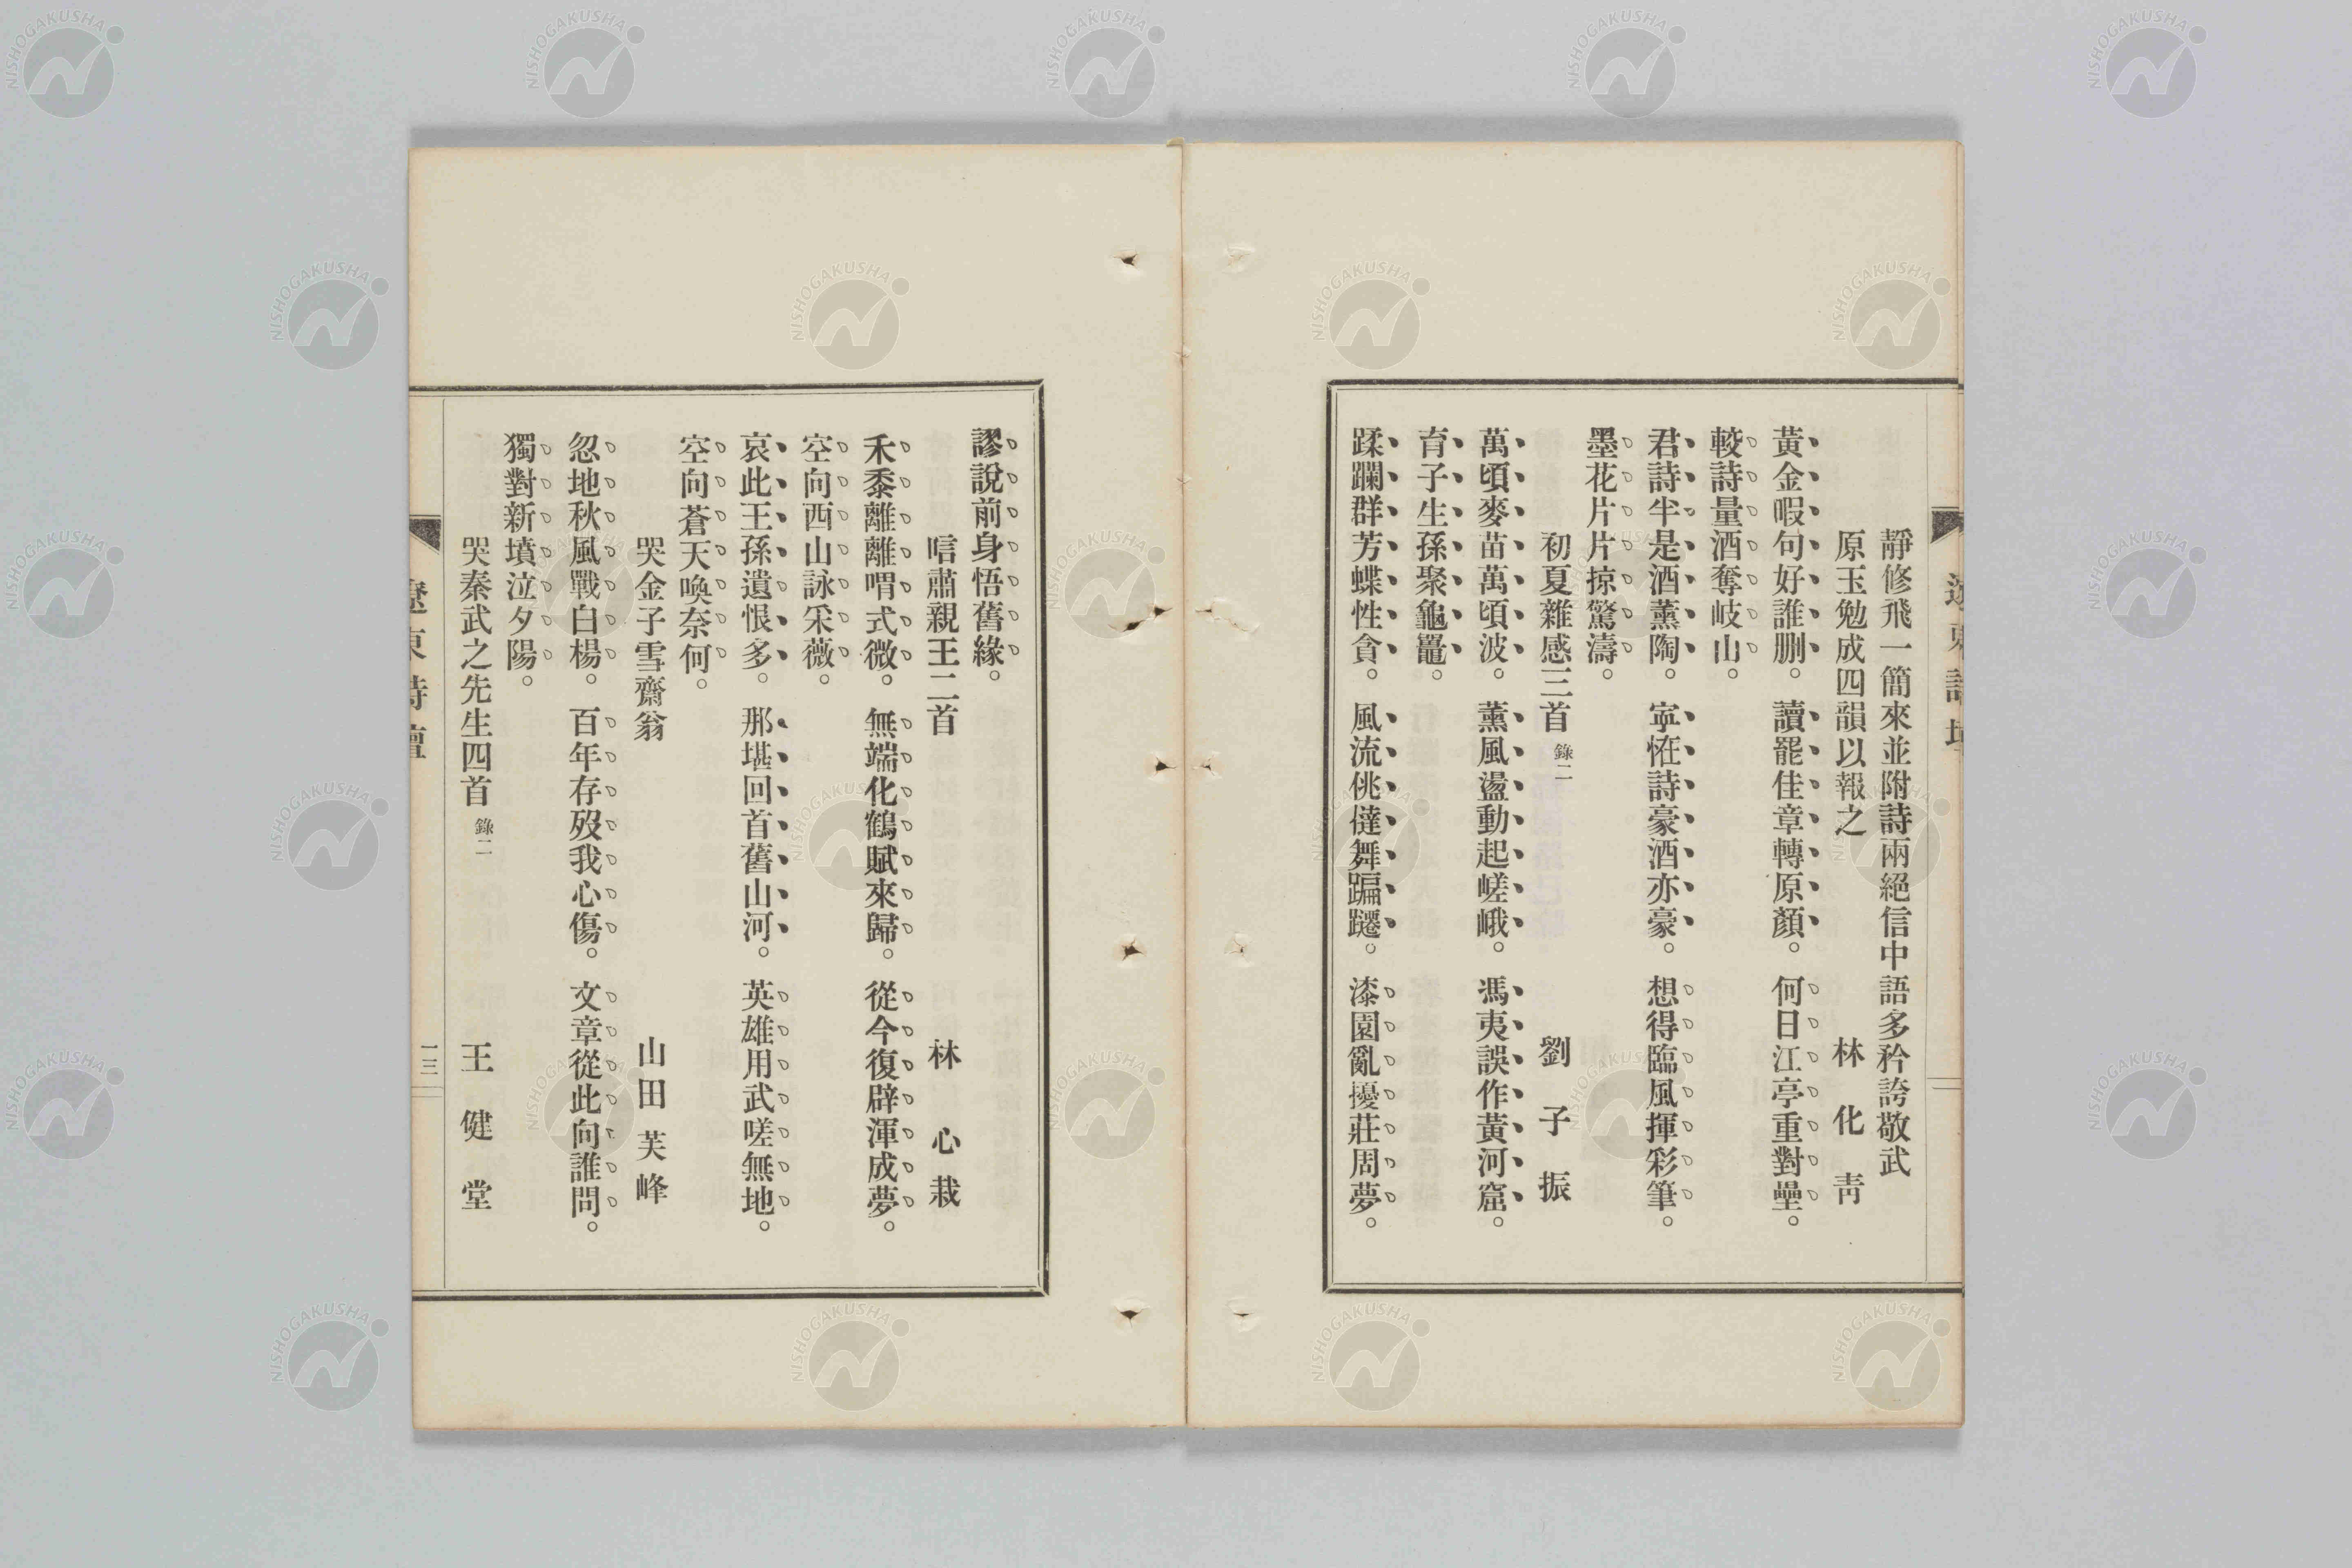 靜修飛一簡來並附詩兩絕信中語多矜誇敬武
原玉勉成四韻以報之 林化靑
黃金暇句好誰刪。讀罷佳章轉原顏。何日江亭重對壘。
較詩量酒奪岐山。
君詩半是酒薰陶。寧恠詩豪酒亦豪。想得臨風揮彩筆。
墨花片片掠驚濤。
初夏雜感三首 錄二 劉子振
萬頃麥苗萬頃波。薰風盪動起嵯峨。馮夷誤作黃河窟。
育子生孫聚龜鼉。
蹂躝群芳蝶性貪。風流佻㒓舞蹁躚。漆園亂擾莊周夢。
謬說前身悟舊緣。
唁肅親王二首 林心栽
禾黍離離喟式微。無端化鶴賦來歸。從今復辟渾成夢。
空向西山詠采薇。
哀此王孫遺恨多。那堪回首舊山河。英雄用武嗟無地。
空向蒼天喚奈何。
哭金子雪齋翁 山田芙峰
忽地秋風戰白楊。百年存歿我心傷。文章從此向誰問。
獨對新墳泣夕陽。
哭秦武之先生四首 錄二 王健堂
遼東詩壇
一三
NISHOGAKUSHA